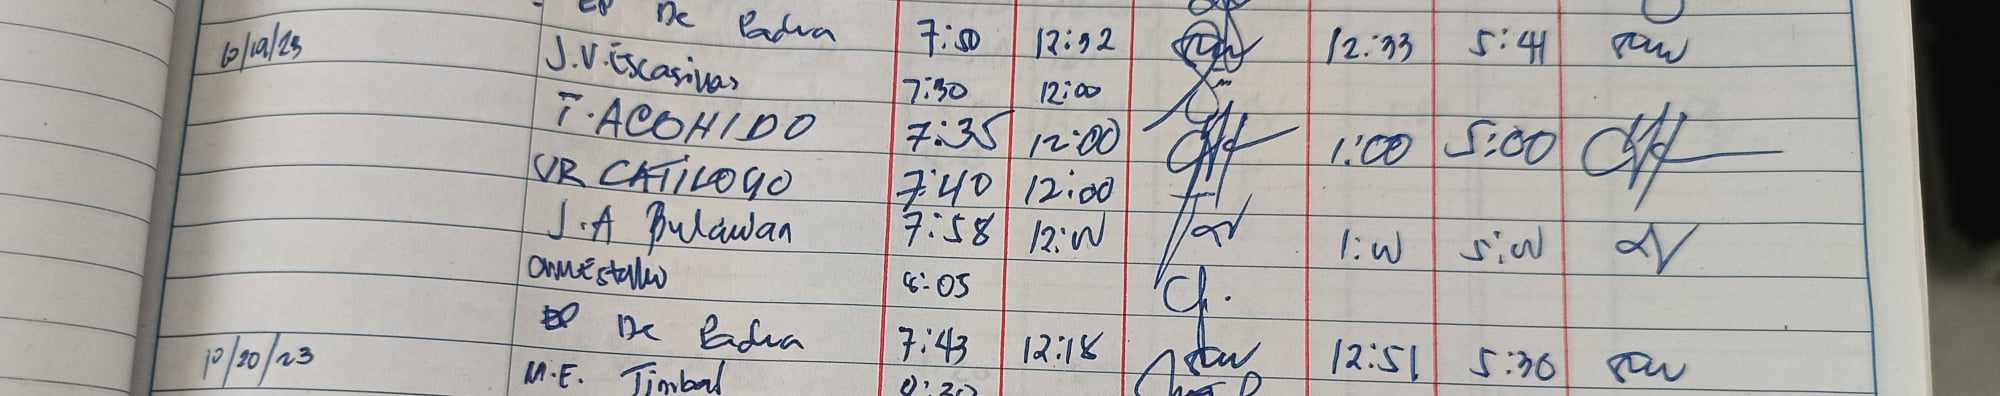 De Padua 7:50 12:32 12:33 5:41
10/19/23 J.V. Escasinas 7:30 12:00
T. ACOHIDO 7:35 12:00 1:00 5:00
VR CATILOGO 7:40 12:00
J.A Bulawan 7:58 12:00 1:00 5:00
8:05
De Padua 7:43 12:18 12:51 5:30
10/20/23 M.E. Timbal